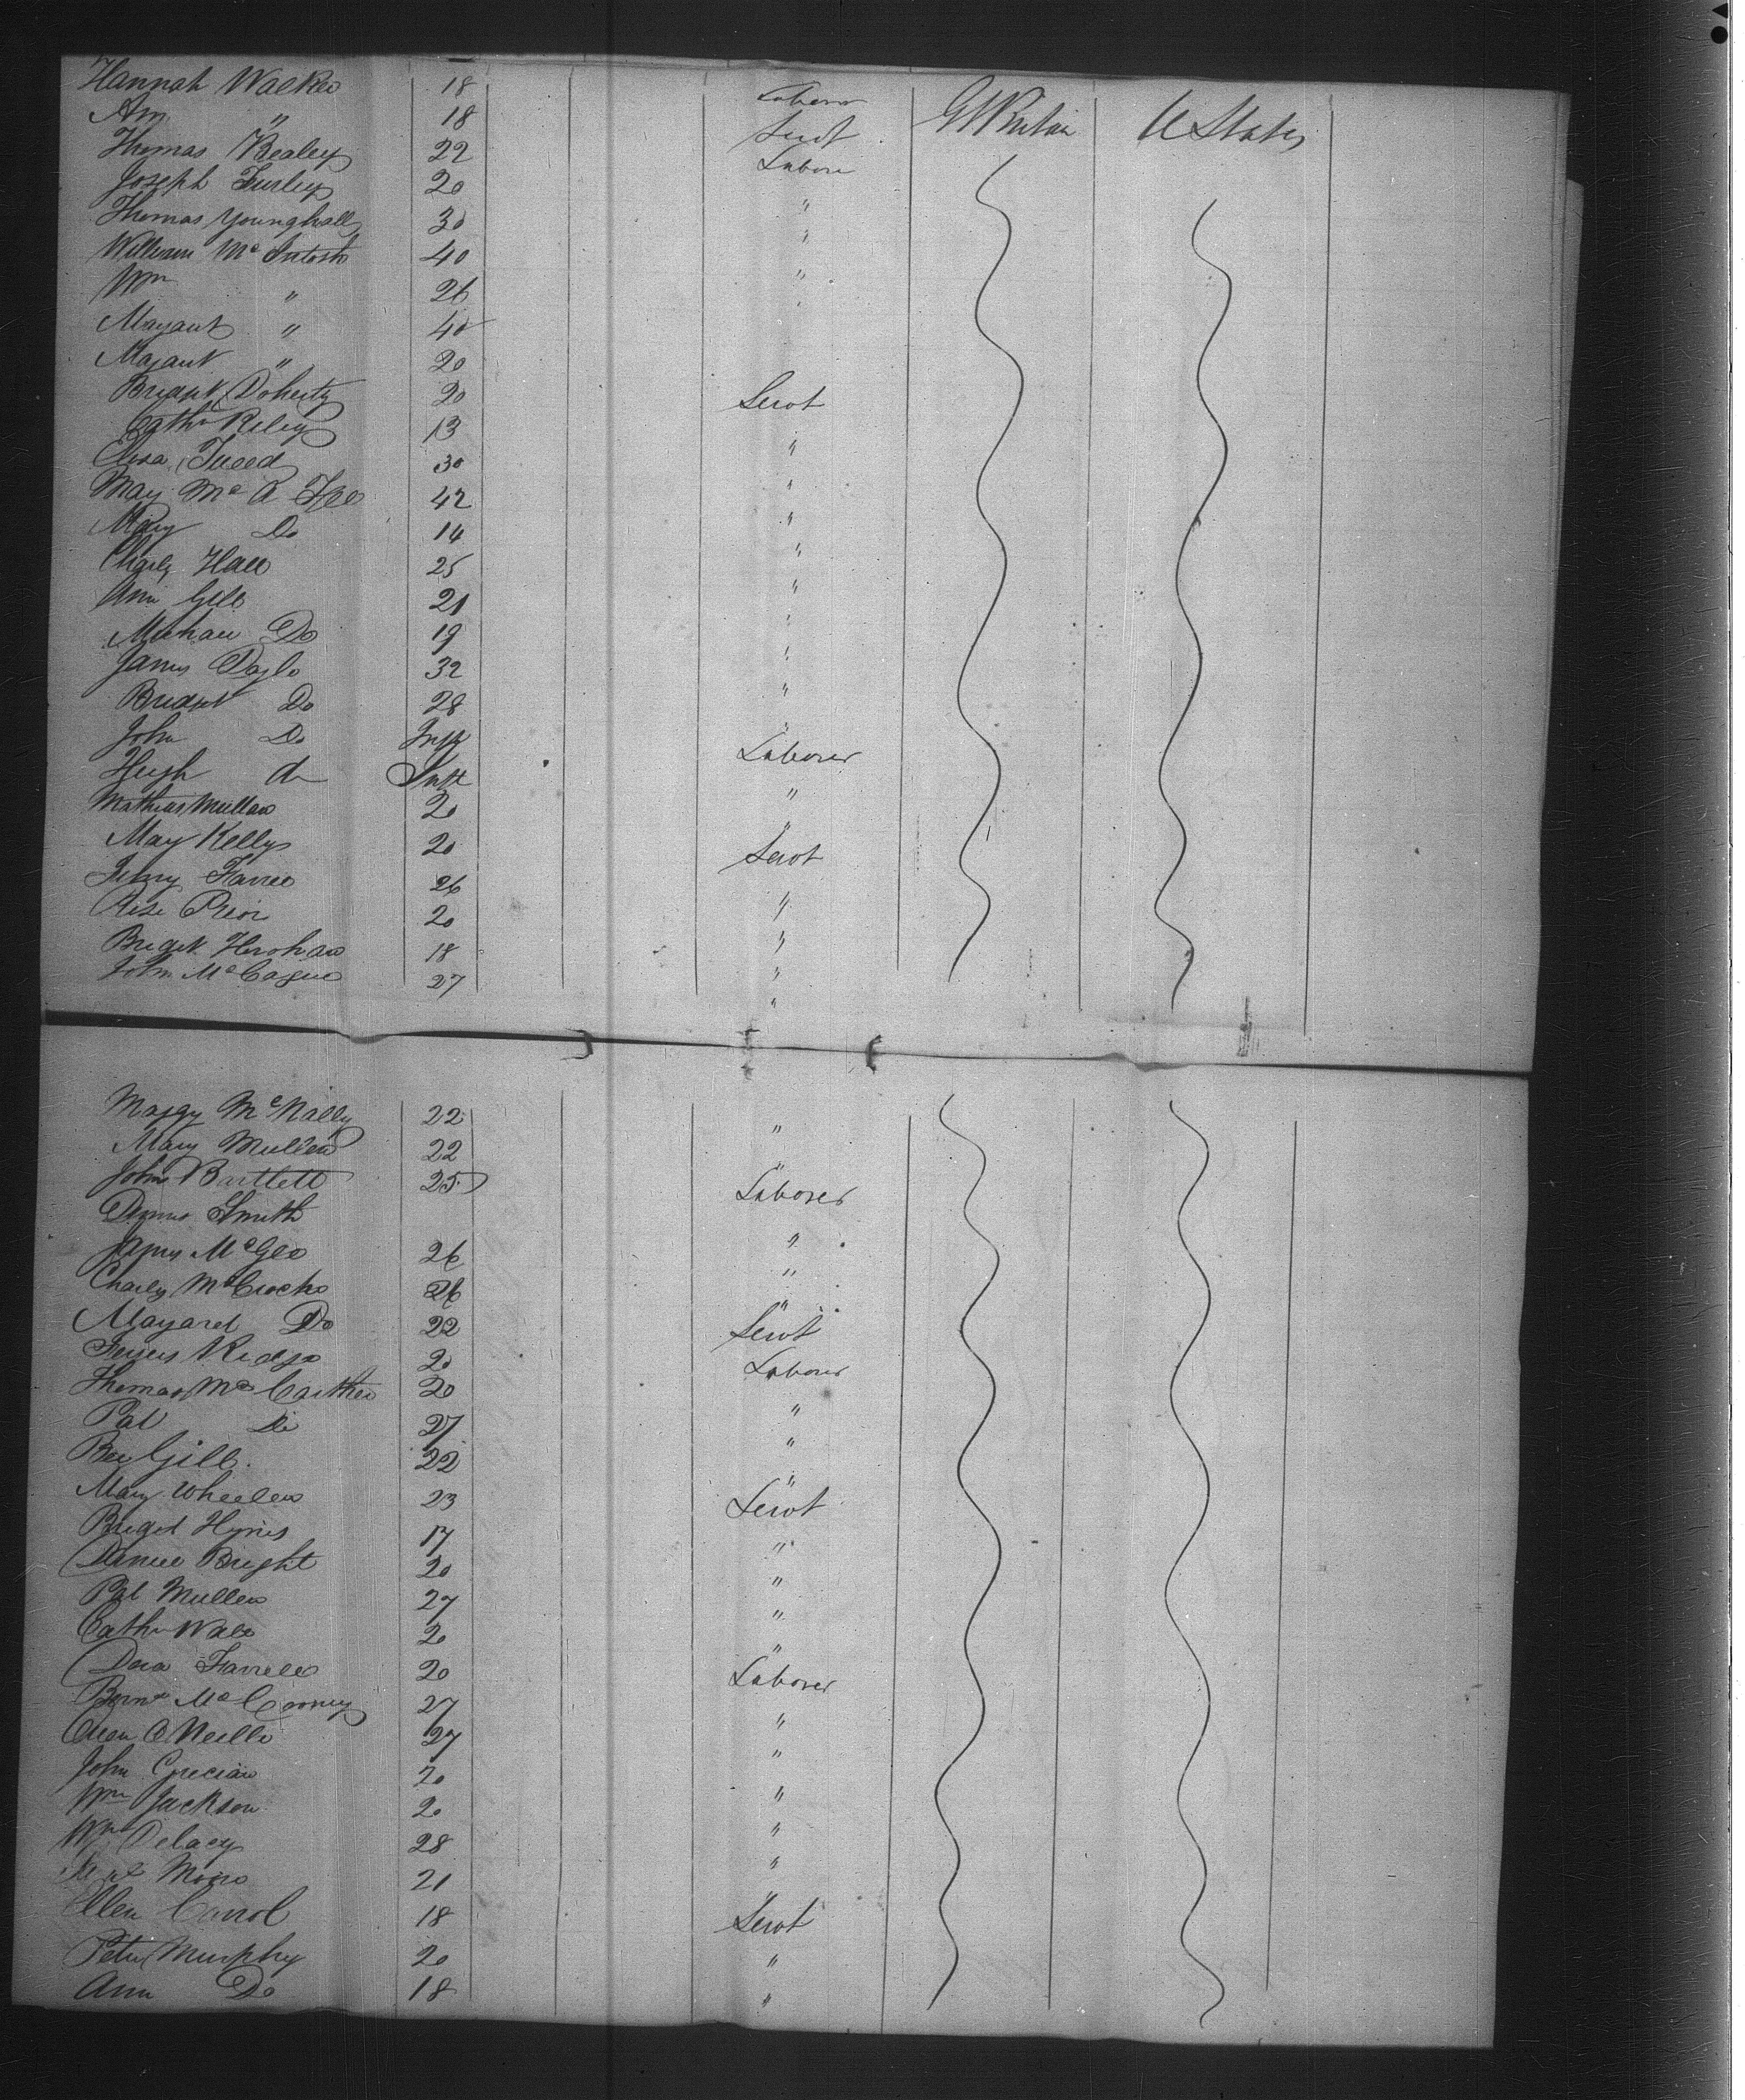 Hannah Walker 18 Laborer Gt Britain U States
Ann " 18 Servt
Thomas Bealey 22 Labore
Joseph Furley 20 "
Thomas Younghall 30 "
William McIntosh 40 "
Wm " 26 "
Margaret " 40
Margaret " 20
Bridget Doherty 20 Servt
Cathn Riley 13 "
Eliza Tueed 30 "
Mary Mc A Fee 42 "
Mary Do 14 "
Charls Hall 25 "
Ann Gill 21 "
Michael Do 19 "
James Doyle 32 "
Bridget Do 28 "
John Do Inft Laborer
Hugh do Inft "
Mathias Mullan 20 "
Mary Kelly 20 Servt
Farrell 26 "
Rose Prior 20 "
Bridget 18 "
John McCague 27 "
Maggy McNally 22 "
Mary Mullen 22 "
John Bartlett 25 Laborer
Smith "
James McGee 26 "
Charls 26 "
Margaret Do 22 Servt
20 Laborer
Thomas McCarthen 20 "
Pat Do 27 "
Gill 22 "
Mary Wheelen 23 Servt
Briget Hynes 17 "
Daniel Bright 20 "
Pat Mullen 27 "
Cathn Wall 20 "
Dora Farrell 20 Laborer
27 "
Owen O Neill 27 "
John Grecian 20 "
Wm Jackson 20 "
Wm Delacy 28 "
21 "
Ellen Carrol 18 Servt
Peter Murphy 20 "
Ann Do 18 "